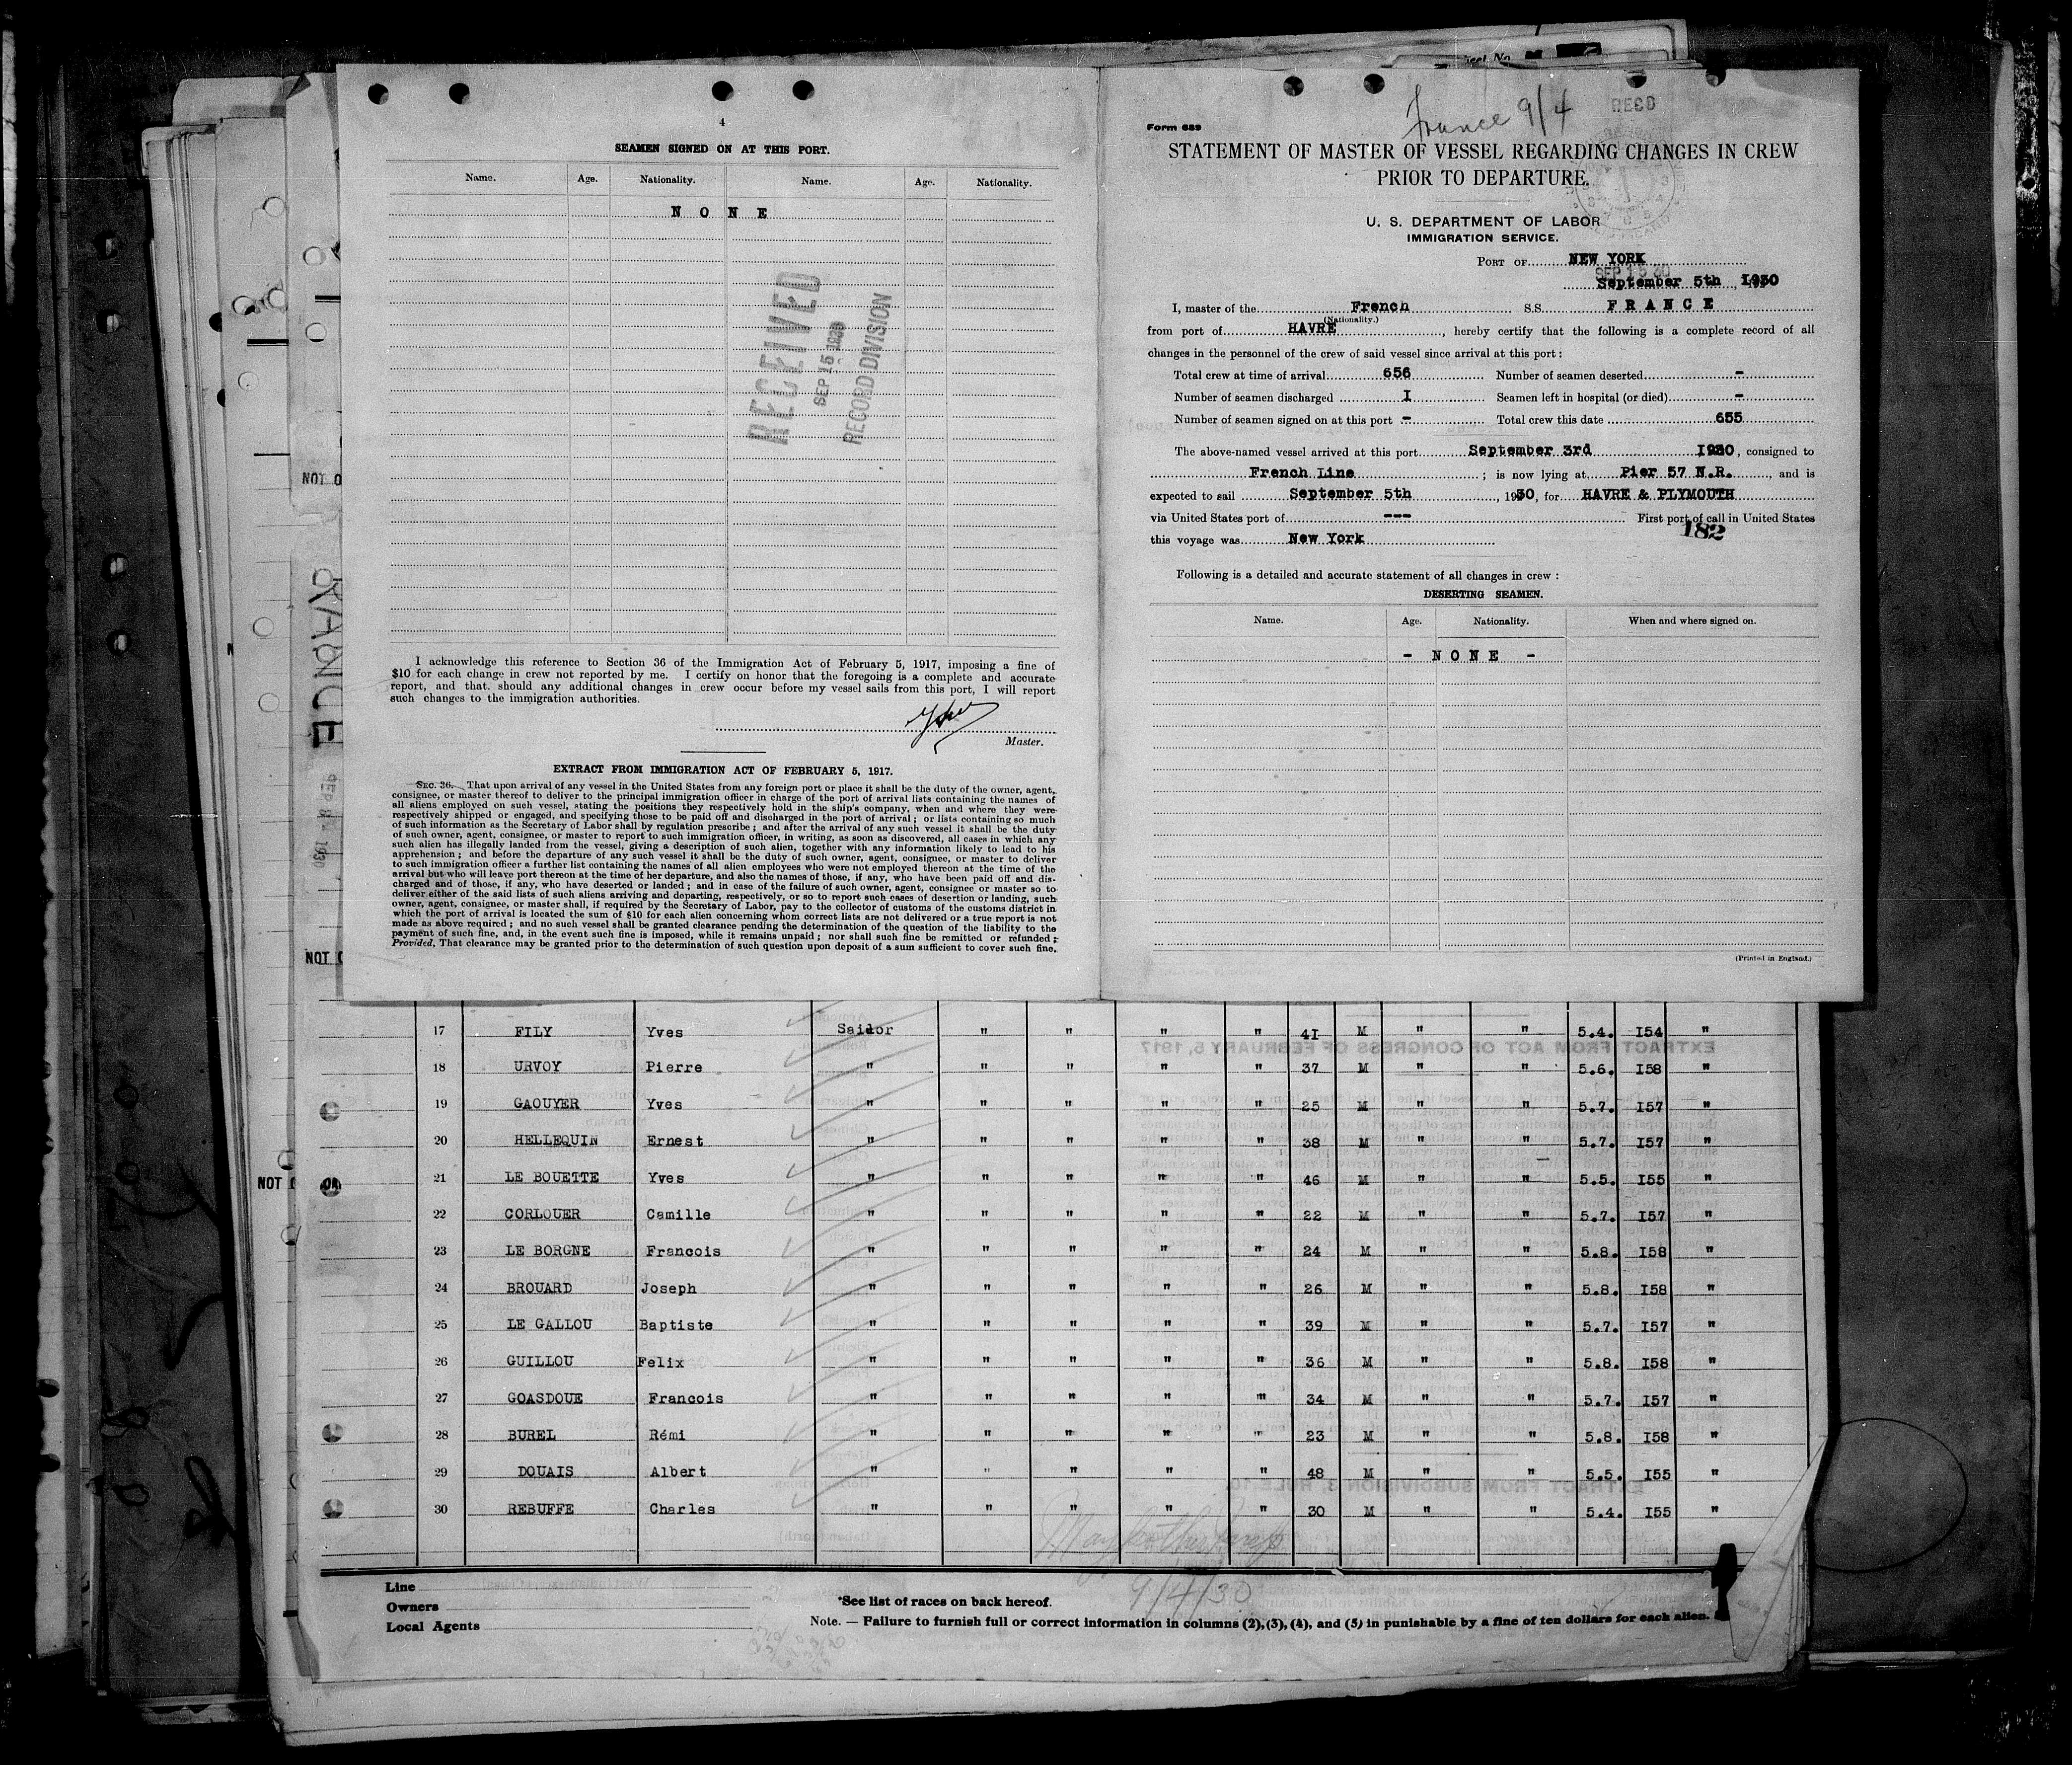 4
SEAMEN SIGNED ON AT THIS PORT.
Name. Age. Nationality. Name. Age. Nationality.
N O N E
RECEIVED
SEP 15 1930
RECORD DIVISION
I acknowledge this reference to Section 36 of the Immigration Act of February 5, 1917, imposing a fine of
$10 for each change in crew not reported by me. I certify on honor that the foregoing is a complete and accurate
report, and that should any additional changes in crew occur before my vessel sails from this port, I will report
such changes to the immigration authorities.
Master.
EXTRACT FROM IMMIGRATION ACT OF FEBRUARY 5, 1917.
SEC. 36. That upon arrival of any vessel in the United States from any foreign port or place it shall be the duty of the owner, agent,
consignee, or master thereof to deliver to the principal immigration officer in charge of the port of arrival lists containing the names of
all aliens employed on such vessel, stating the positions they respectively hold in the ship's company, when and where they were
respectively shipped or engaged, and specifying those to be paid off and discharged in the port of arrival; or lists containing so much
of such information as the Secretary of Labor shall by regulation prescribe; and after the arrival of any such vessel it shall be the duty
of such owner, agent, consignee, or master to report to such immigration officer, in writing, as soon as discovered, all cases in which any
such alien has illegally landed from the vessel, giving a description of such alien, together with any information likely to lead to his
apprehension; and before the departure of any such vessel it shall be the duty of such owner, agent, consignee, or master to deliver
to such immigration officer a further list containing the names of all alien employees who were not employed thereon at the time of the
arrival but who will leave port thereon at the time of her departure, and also the names of those, if any, who have been paid off and dis-
charged and of those, if any, who have deserted or landed; and in case of the failure of such owner, agent, consignee or master so to
deliver either of the said lists of such aliens arriving and departing, respectively, or so to report such cases of desertion or landing, such
owner, agent, consignee, or master shall, if required by the Secretary of Labor, pay to the collector of customs of the customs district in
which the port of arrival is located the sum of $10 for each alien concerning whom correct lists are not delivered or a true report is not
made as above required; and no such vessel shall be granted clearance pending the determination of the question of the liability to the
payment of such fine, and, in the event such fine is imposed, while it remains unpaid; nor shall such fine be remitted or refunded;
Provided, That clearance may be granted prior to the determination of such question upon deposit of a sum sufficient to cover such fine.
France 9/4
RECD
Form 689
STATEMENT OF MASTER OF VESSEL REGARDING CHANGES IN CREW
PRIOR TO DEPARTURE.
U. S. DEPARTMENT OF LABOR
IMMIGRATION SERVICE.
PORT OF NEW YORK
SEP 15 30
September 5th, 1930
I, master of the French S.S. F R A N C E
(Nationality.)
from port of HAVRE, hereby certify that the following is a complete record of all
changes in the personnel of the crew of said vessel since arrival at this port:
Total crew at time of arrival 656 Number of seamen deserted -
Number of seamen discharged I Seamen left in hospital (or died) -
Number of seamen signed on at this port - Total crew this date 655
The above-named vessel arrived at this port September 3rd 1930, consigned to
French Line; is now lying at Pier 57 N.R., and is
expected to sail September 5th, 1930, for HAVRE & PLYMOUTH
via United States port of --- First port of call in United States
this voyage was New York
182
Following is a detailed and accurate statement of all changes in crew:
DESERTING SEAMEN.
Name. Age. Nationality. When and where signed on.
- N O N E -
(Printed in England.)
NOT O
FRANCE
SEP 8 1930
NOT O
NOT
17 FILY Yves Sailor " " " " 41 M " " 5.4. I54 "
18 URVOY Pierre " " " " " 37 M " " 5.6. I58 "
19 GAOUYER Yves " " " " " 25 M " " 5.7. I57 "
20 HELLEQUIN Ernest " " " " " 38 M " " 5.7. I57 "
21 LE BOUETTE Yves " " " " " 46 M " " 5.5. I55 "
22 CORLOUER Camille " " " " " 22 M " " 5.7. I57 "
23 LE BORGNE Francois " " " " " 24 M " " 5.8. I58 "
24 BROUARD Joseph " " " " " 26 M " " 5.8. I58 "
25 LE GALLOU Baptiste " " " " " 39 M " " 5.7. I57 "
26 GUILLOU Felix " " " " " 36 M " " 5.8. I58 "
27 GOASDOUE Francois " " " " " 34 M " " 5.7. I57 "
28 BUREL Rémi " " " " " 23 M " " 5.8. I58 "
29 DOUAIS Albert " " " " " 48 M " " 5.5. I55 "
30 REBUFFE Charles " " " " " 30 M " " 5.4. I55 "
EXTRACT FROM ACT OF CONGRESS OF FEBRUARY 5, 1917
EXTRACT FROM SUBDIVISION 3, RULE 10.
9/4/30
Line
Owners
Local Agents
*See list of races on back hereof.
Note. — Failure to furnish full or correct information in columns (2),(3),(4), and (5) in punishable by a fine of ten dollars for each alien.